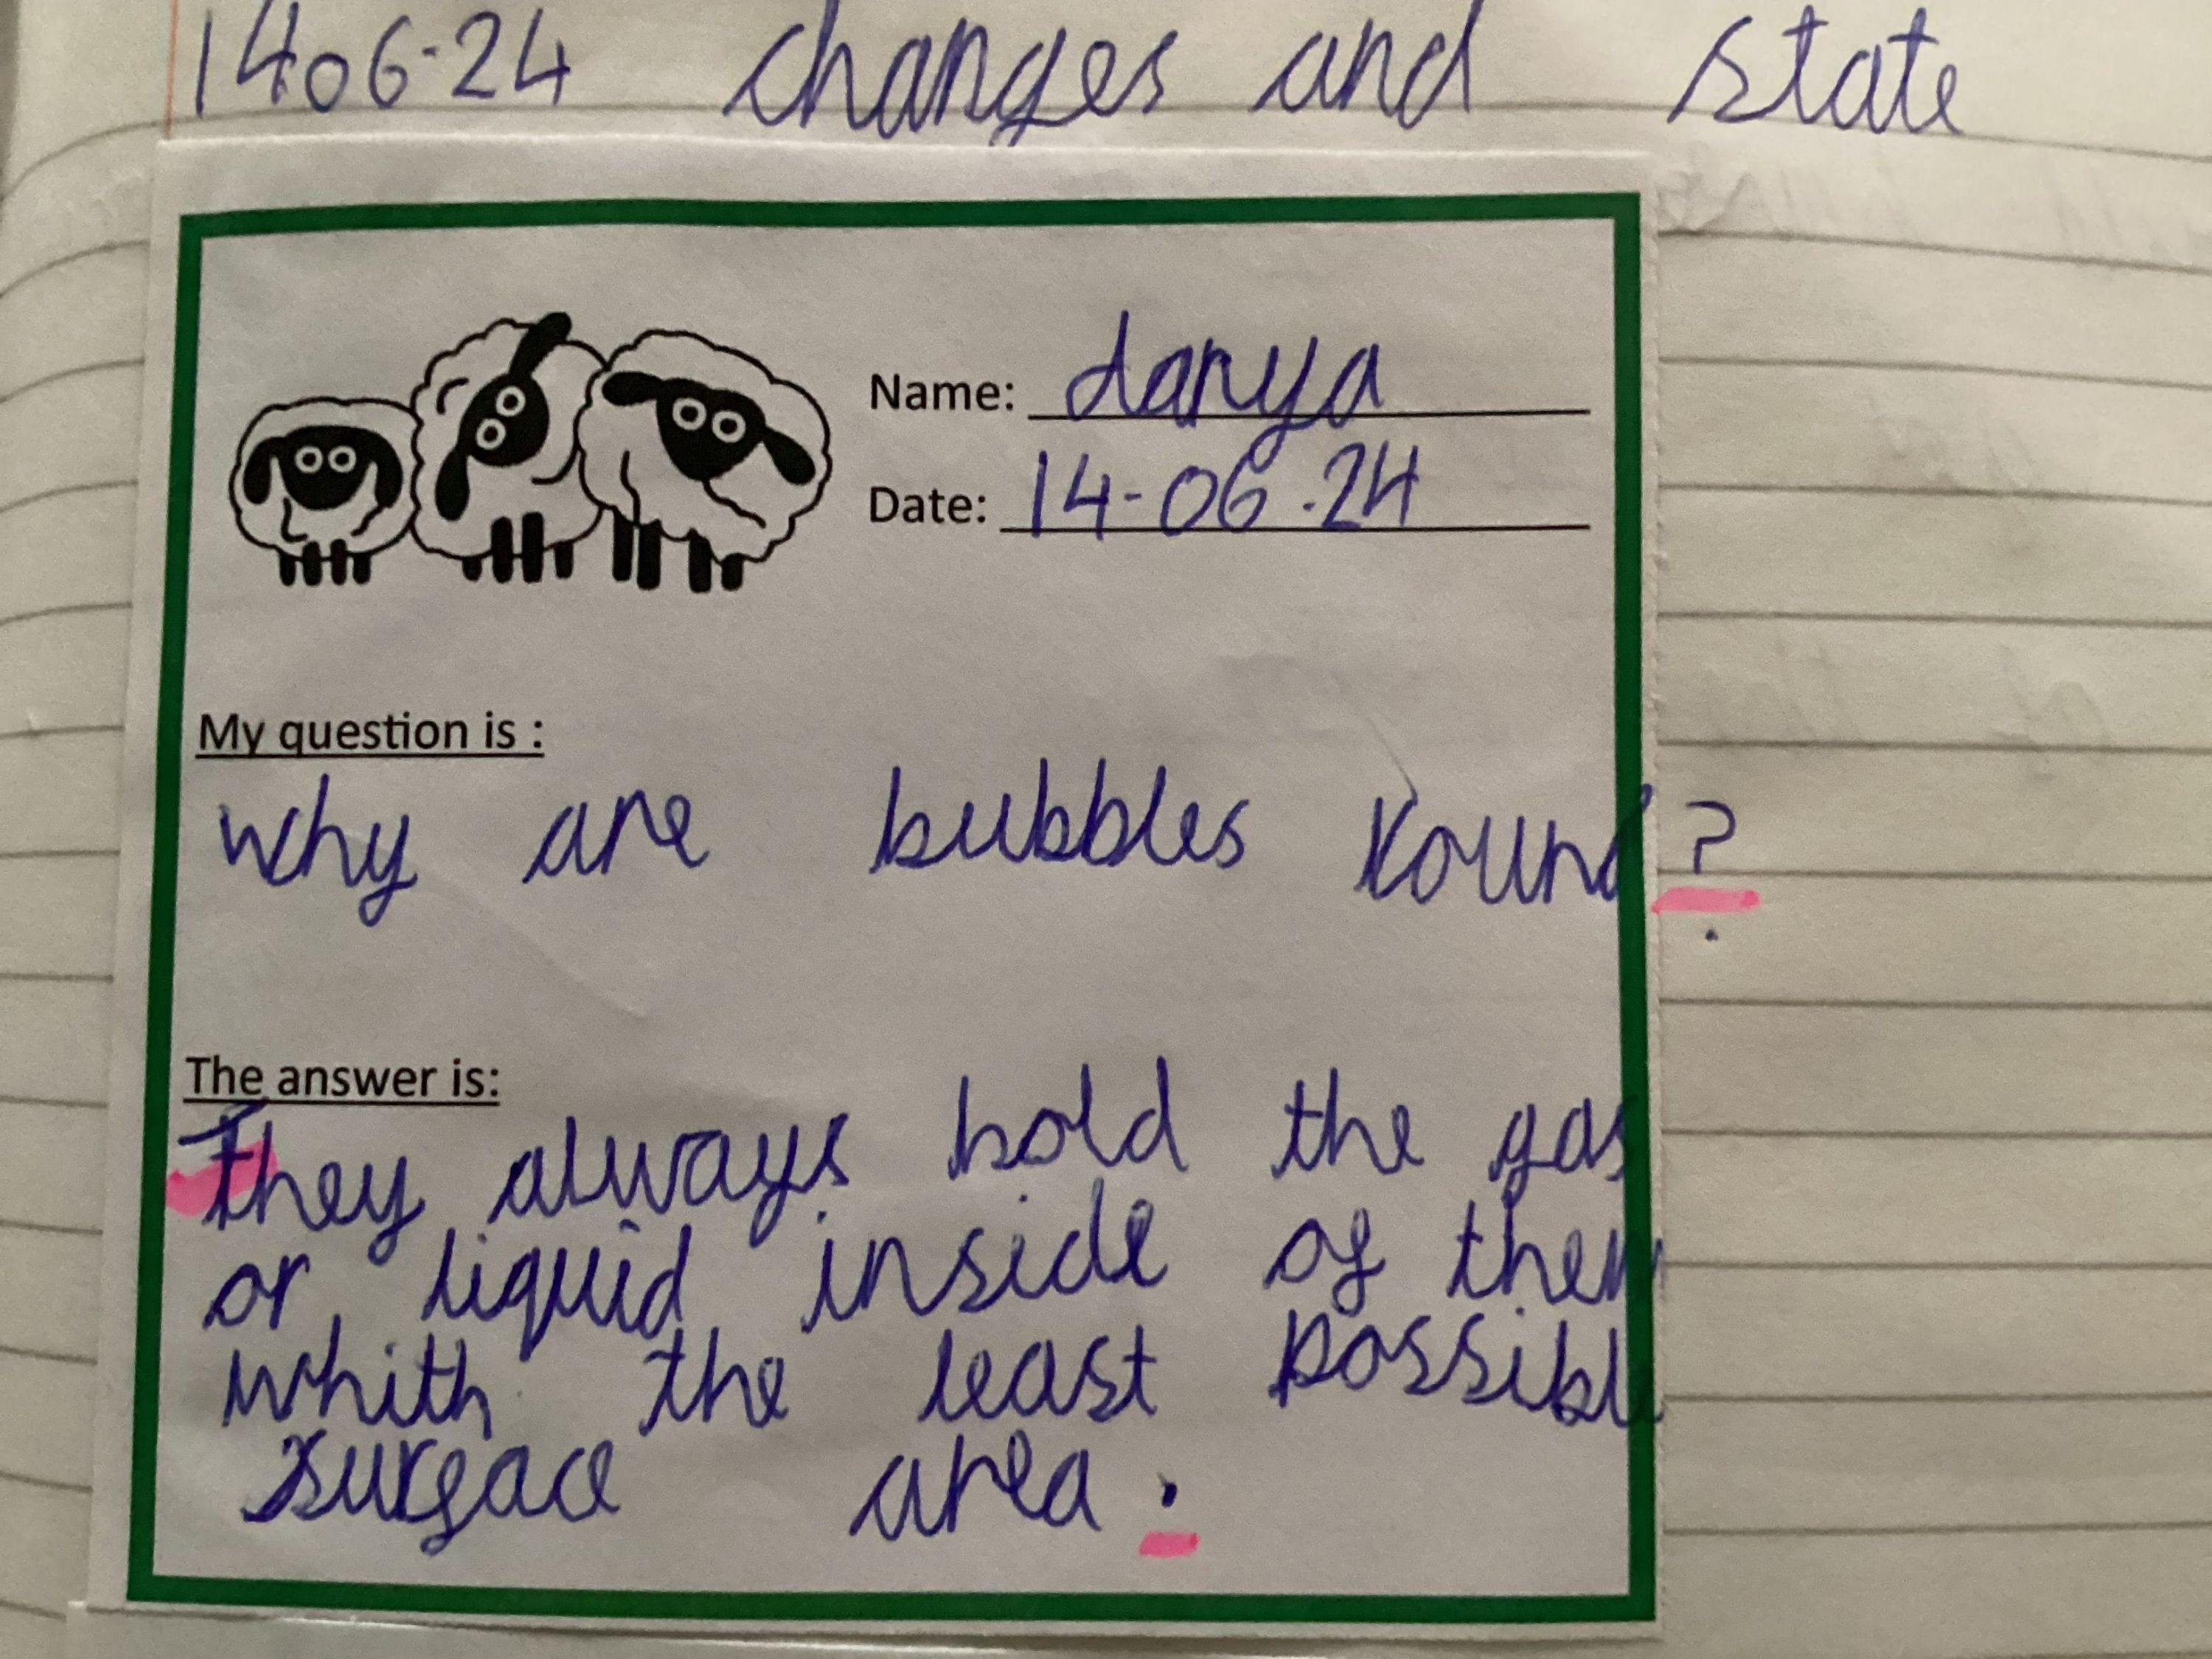 1406-24 changes and state
Name: danya
Date: 14-06-24
My question is :
why are bubbles round?
The answer is:
They always hold the gas
or liquid inside of them
whith the least possible
surface area.